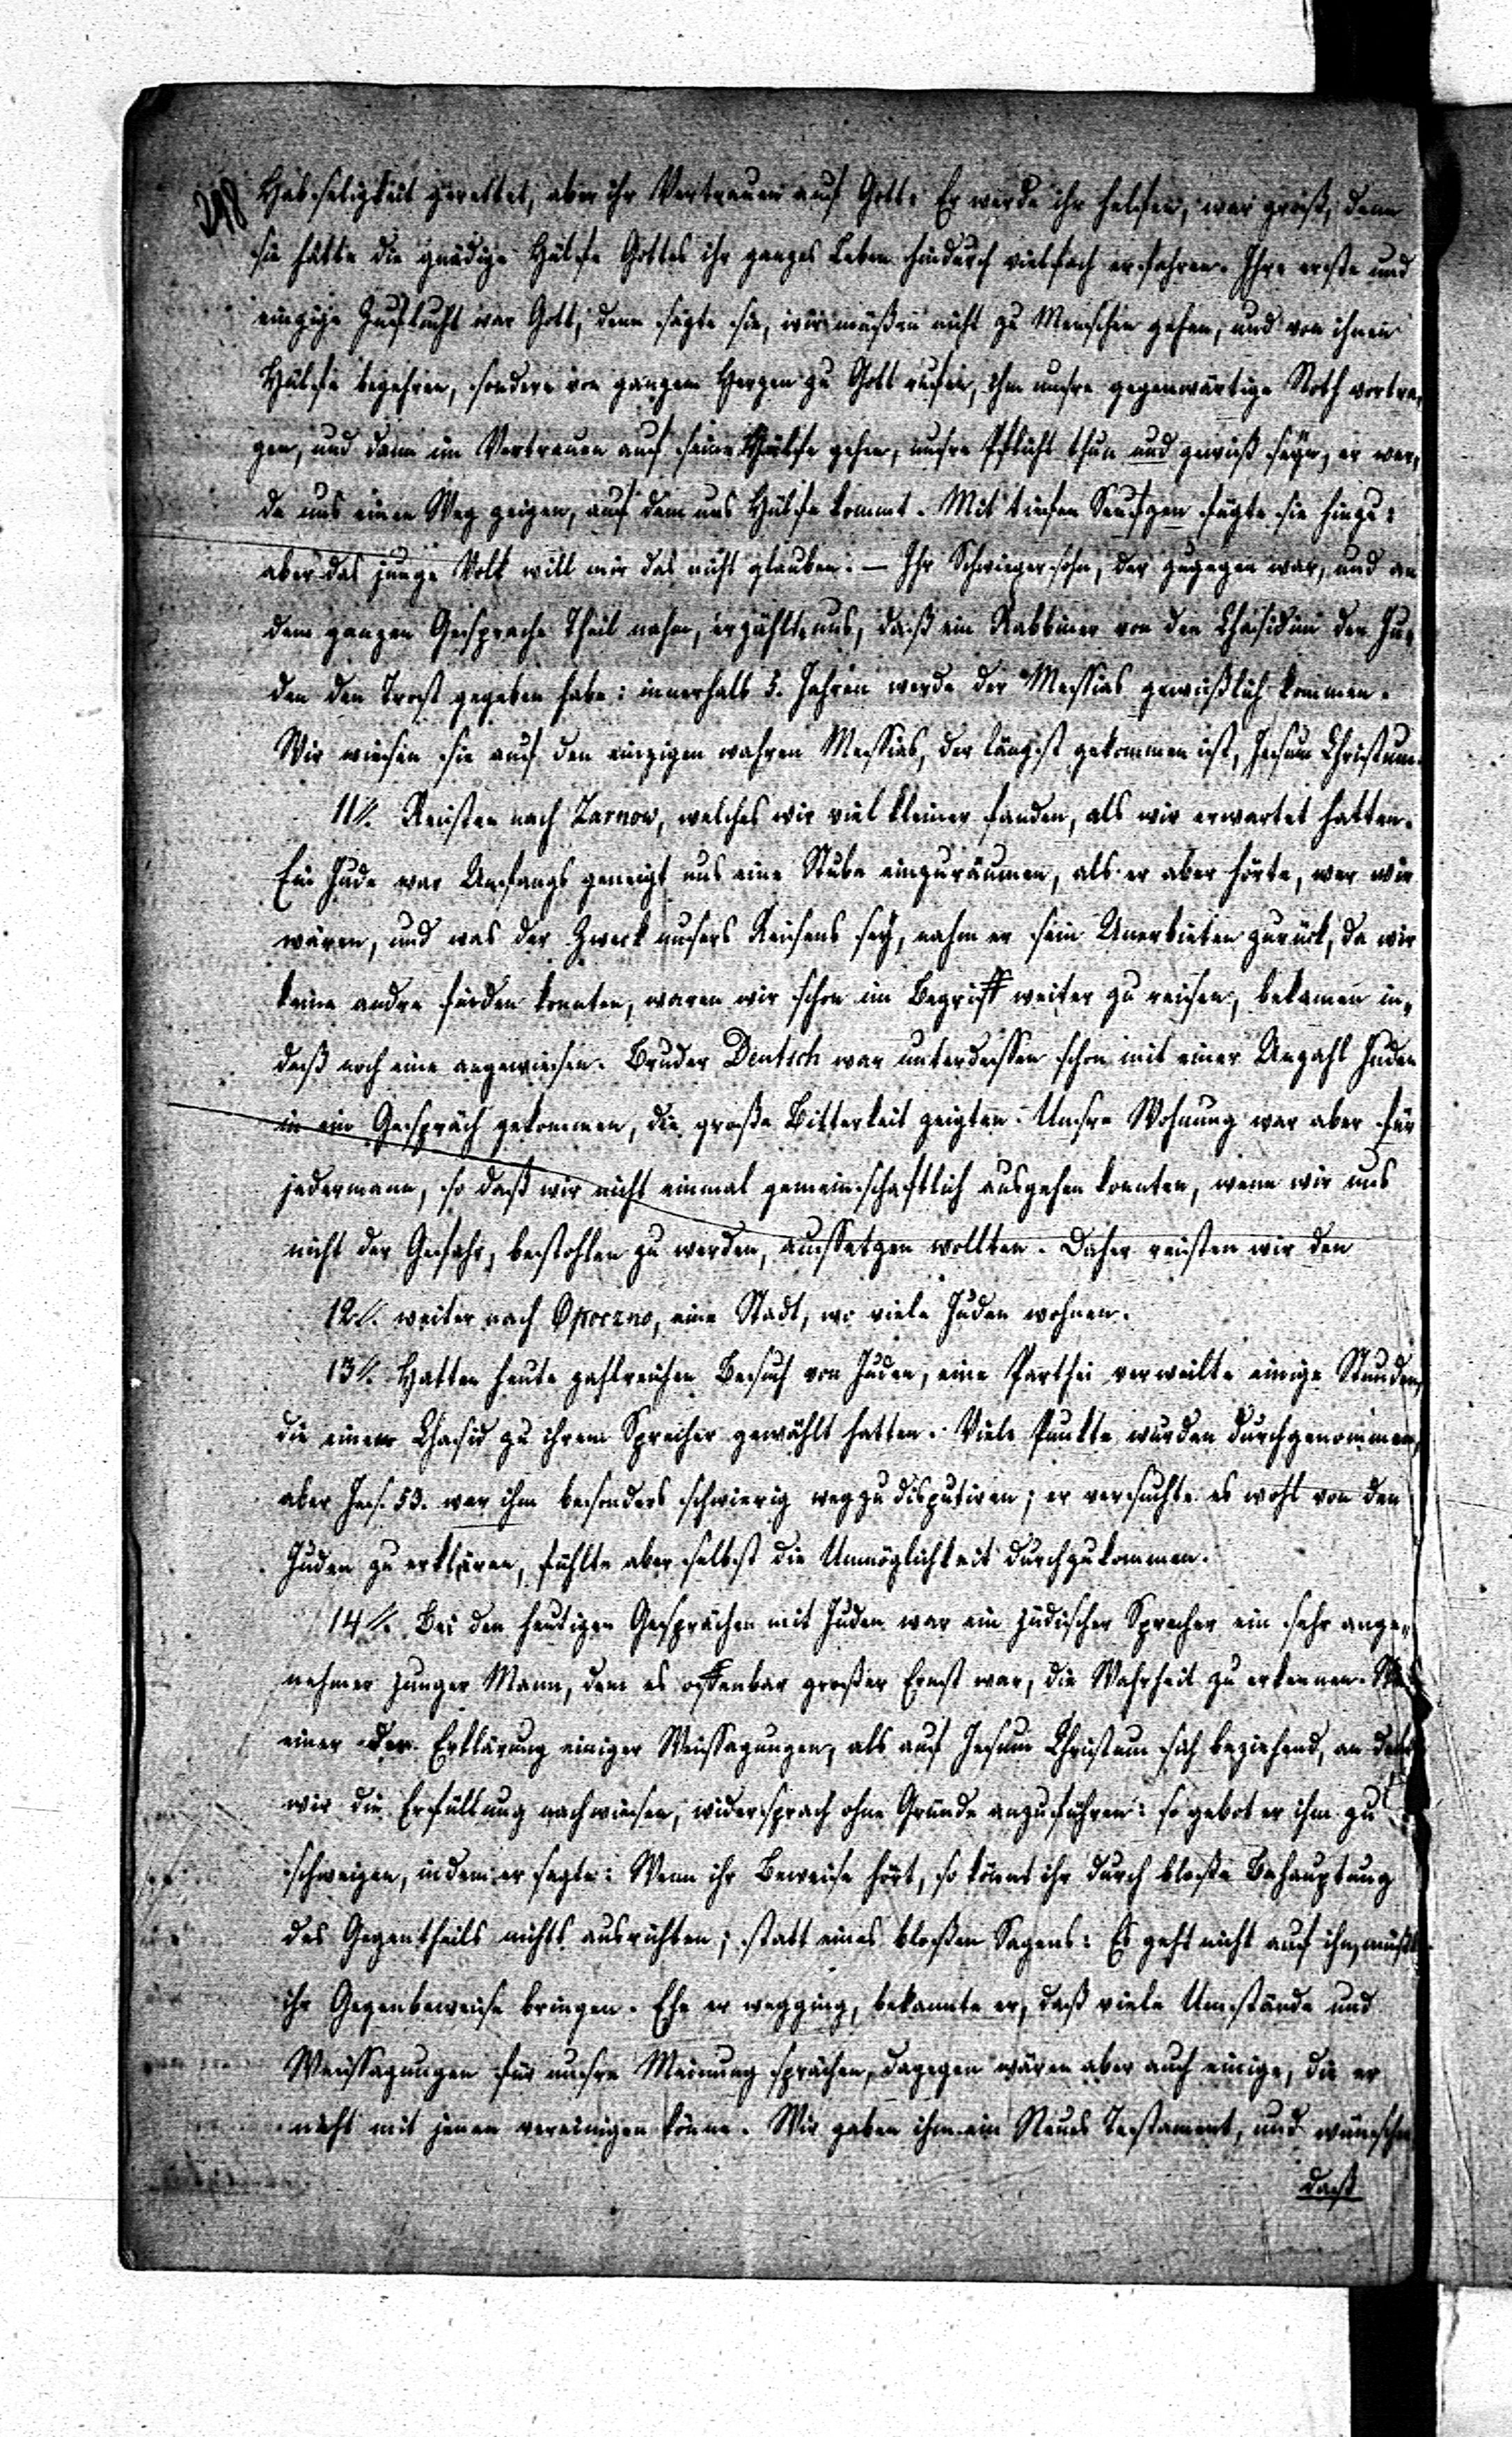 298
Habseligkeit gerettet, aber ihr Vertrauen auf Gott: Er werde ihr helfen, war groß, denn
sie hätte die gnädige Hülfe Gottes ihr ganzes Leben hindurch vielfach erfahren. Ihre erste und
einzige Zuflucht war Gott, denn sagte sie, wir müßen nicht zu Menschen gehen, und von ihnen
Hülfe begehren, sondern von ganzem Herzen zu Gott rufen, Ihm unsre gegenwärtige Noth vortra„
gen, und dann im Vertrauen auf seine Hülfe gehen, unsre Pflicht thun und gewiß seyn, er wer„
de uns einen Weg zeigen, auf dem uns Hülfe kommt. Mit tiefen Seufzen sagte sie hinzu:
aber das junge Volk will mir das nicht glauben. — Ihr Schwiegersohn, der zugegen war, und an
dem ganzen Gespräche Theil nahm, erzählte uns, daß ein Rabbiner von den Chasidim den Ju„
den den Trost gegeben habe: innerhalb 5. Jahren werde der Messias gewißlich kommen.
Wir wiesen sie auf den einzigen wahren Messias, der längst gekommen ist, Jesum Christum.
11/. Reisten nach Zarnow, welches wir viel kleiner fanden, als wir erwartet hatten.
Ein Jude war Anfangs geneigt uns eine Stube einzuräumen, als er aber hörte, wer wir
wären, und was der Zweck unsers Reisens sey, nahm er sein Anerbieten zurück, da wir
keine andre finden konnten, waren wir schon im Begriff weiter zu reisen, bekamen in„
deß noch eine angewiesen. Bruder Deutsch war unterdessen schon mit einer Anzahl Juden
in ein Gespräch gekommen, die große Bitterkeit zeigten. Unsre Wohnung war aber für
jedermann, so daß wir nicht einmal gemeinschaftlich ausgehen konnten, wenn wir uns
nicht der Gefahr, bestohlen zu werden, aussetzen wollten. Daher reisten wir den
12/. weiter nach Opoczno, eine Stadt, wo viele Juden wohnen.
13/. Hatten heute zahlreichen Besuch von Juden, eine Parthei verweilte einige Stunden,
die einen Chasid zu ihrem Sprecher gewählt hatten. Viele Punkte wurden durchgenommen,
aber Jes. 53. war ihm besonders schwierig wegzudisputiren; er versuchte es wohl von den
Juden zu erklären, fühlte aber selbst die Unmöglichkeit durchzukommen.
14/. Bei den heutigen Gesprächen mit Juden war ein jüdischer Sprecher ein sehr ange„
nehmer junger Mann, dem es offenbar großer Ernst war, die Wahrheit zu erkennen.
einer der Erklärung einiger Weissagungen, als auf Jesum Christum sich beziehend, an dem
wir die Erfüllung nachwiesen, widersprach ohne Gründe anzuführen: so gebot er ihm zu
schweigen, indem er sagte: Wenn ihr Beweise hört, so könnt ihr durch bloße Behauptung
des Gegentheils nichts ausrichten; statt eines bloßen Sagens: Es geht nicht auf ihn, müßt
ihr Gegenbeweise bringen. Ehe er wegging, bekannte er, daß viele Umstände und
Weissagungen für unsre Meinung sprächen, dagegen wären aber auch einige, die er
nicht mit jenen vereinigen könne. Wir gaben ihm ein Neues Testament, und wünschen
daß